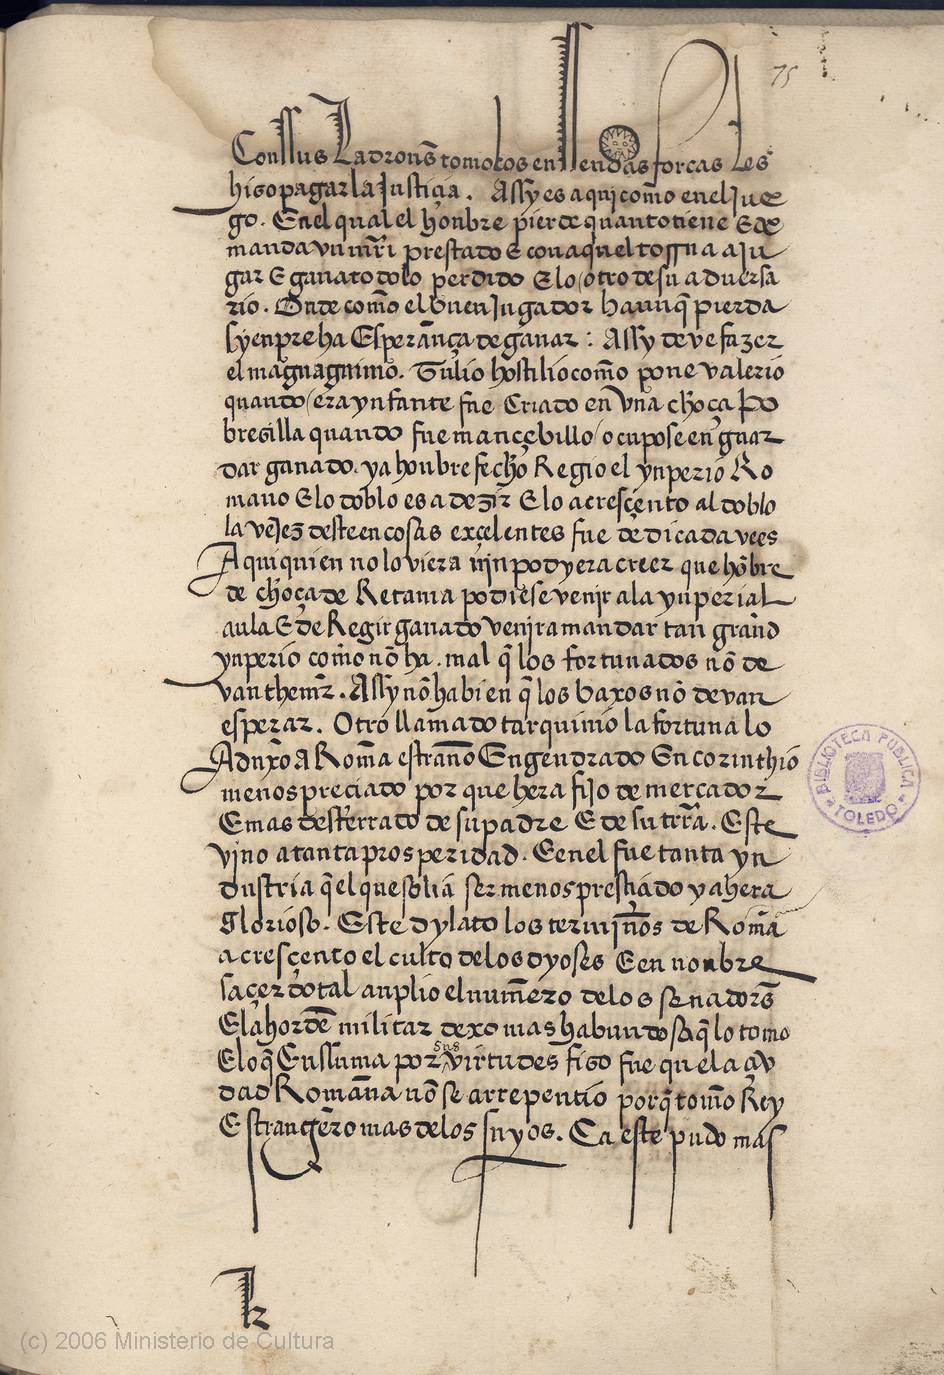 75
Con ssus ladrones tomolos en llen das forcas les
hiso pagar la Justiçia. Assy es aqui como en el Jue
go. En el qual el honbre pierde quanto tiene E de
manda vn mr̃i prestado E con aquel torrna a Ju
gar E gana todo lo perdido E lo otro de su aduersa
rio. Onde com̃o el buen Jugador haunq̃ pierda
syenpre ha Esperãnça de ganar: Assy deve fazer
el magnagnimo. Tulio hostilio com̃o pone valerio
quando era ynfante fue Criado en vna choça po
bresilla quando fue mançebillo ocupose en guar
dar ganado. ya honbre fecho Regio el ynperio Ro
mano E lo doblo es a dezir E lo acresçento al doblo
la vejez deste en cosas exçelentes fue dedicada vees
Aqui quien no lo viera njn podyera creer que hõbre
de choça de Retama podiese venir a la ynperial
aula E de Regir ganado venir a mandar tan grand
ynperio com̃o nõ ha. mal q̃ los fortunados nõ de
van themer. Assy nõ habi en q̃ los baxos nõ devan
esperar. Otro llamado tarquinio la fortuna lo
Aduxo A Rom̃a estrañõ Engendrado En corinthio
menospreciado por que hera fijo de mercador
E mas desterrado de su padre E de su trr̃a. Este
vjno a tanta prosperidad. E en el fue tanta yn
dustria q̃ el que solia ser menospresçiado ya hera
glorioso. Este dylato los termjños de Rom̃a
acresçento el culto de los dyoses E en nonbre
saçerdotal anplio el num̃ero de los senadores
E la hordẽ militar dexo mas habundosa q̃ lo tomo
E lo q̃ En suma por sus virtudes fiso fue que la çiv
dad Romãna nõ se arrepentio porq̃ tom̃o Rey
Estrangero mas de los suyos. Ca este pudo mas
BIBLIOTECA PUBLICA
TOLEDO
(c) 2006 Ministerio de Cultura